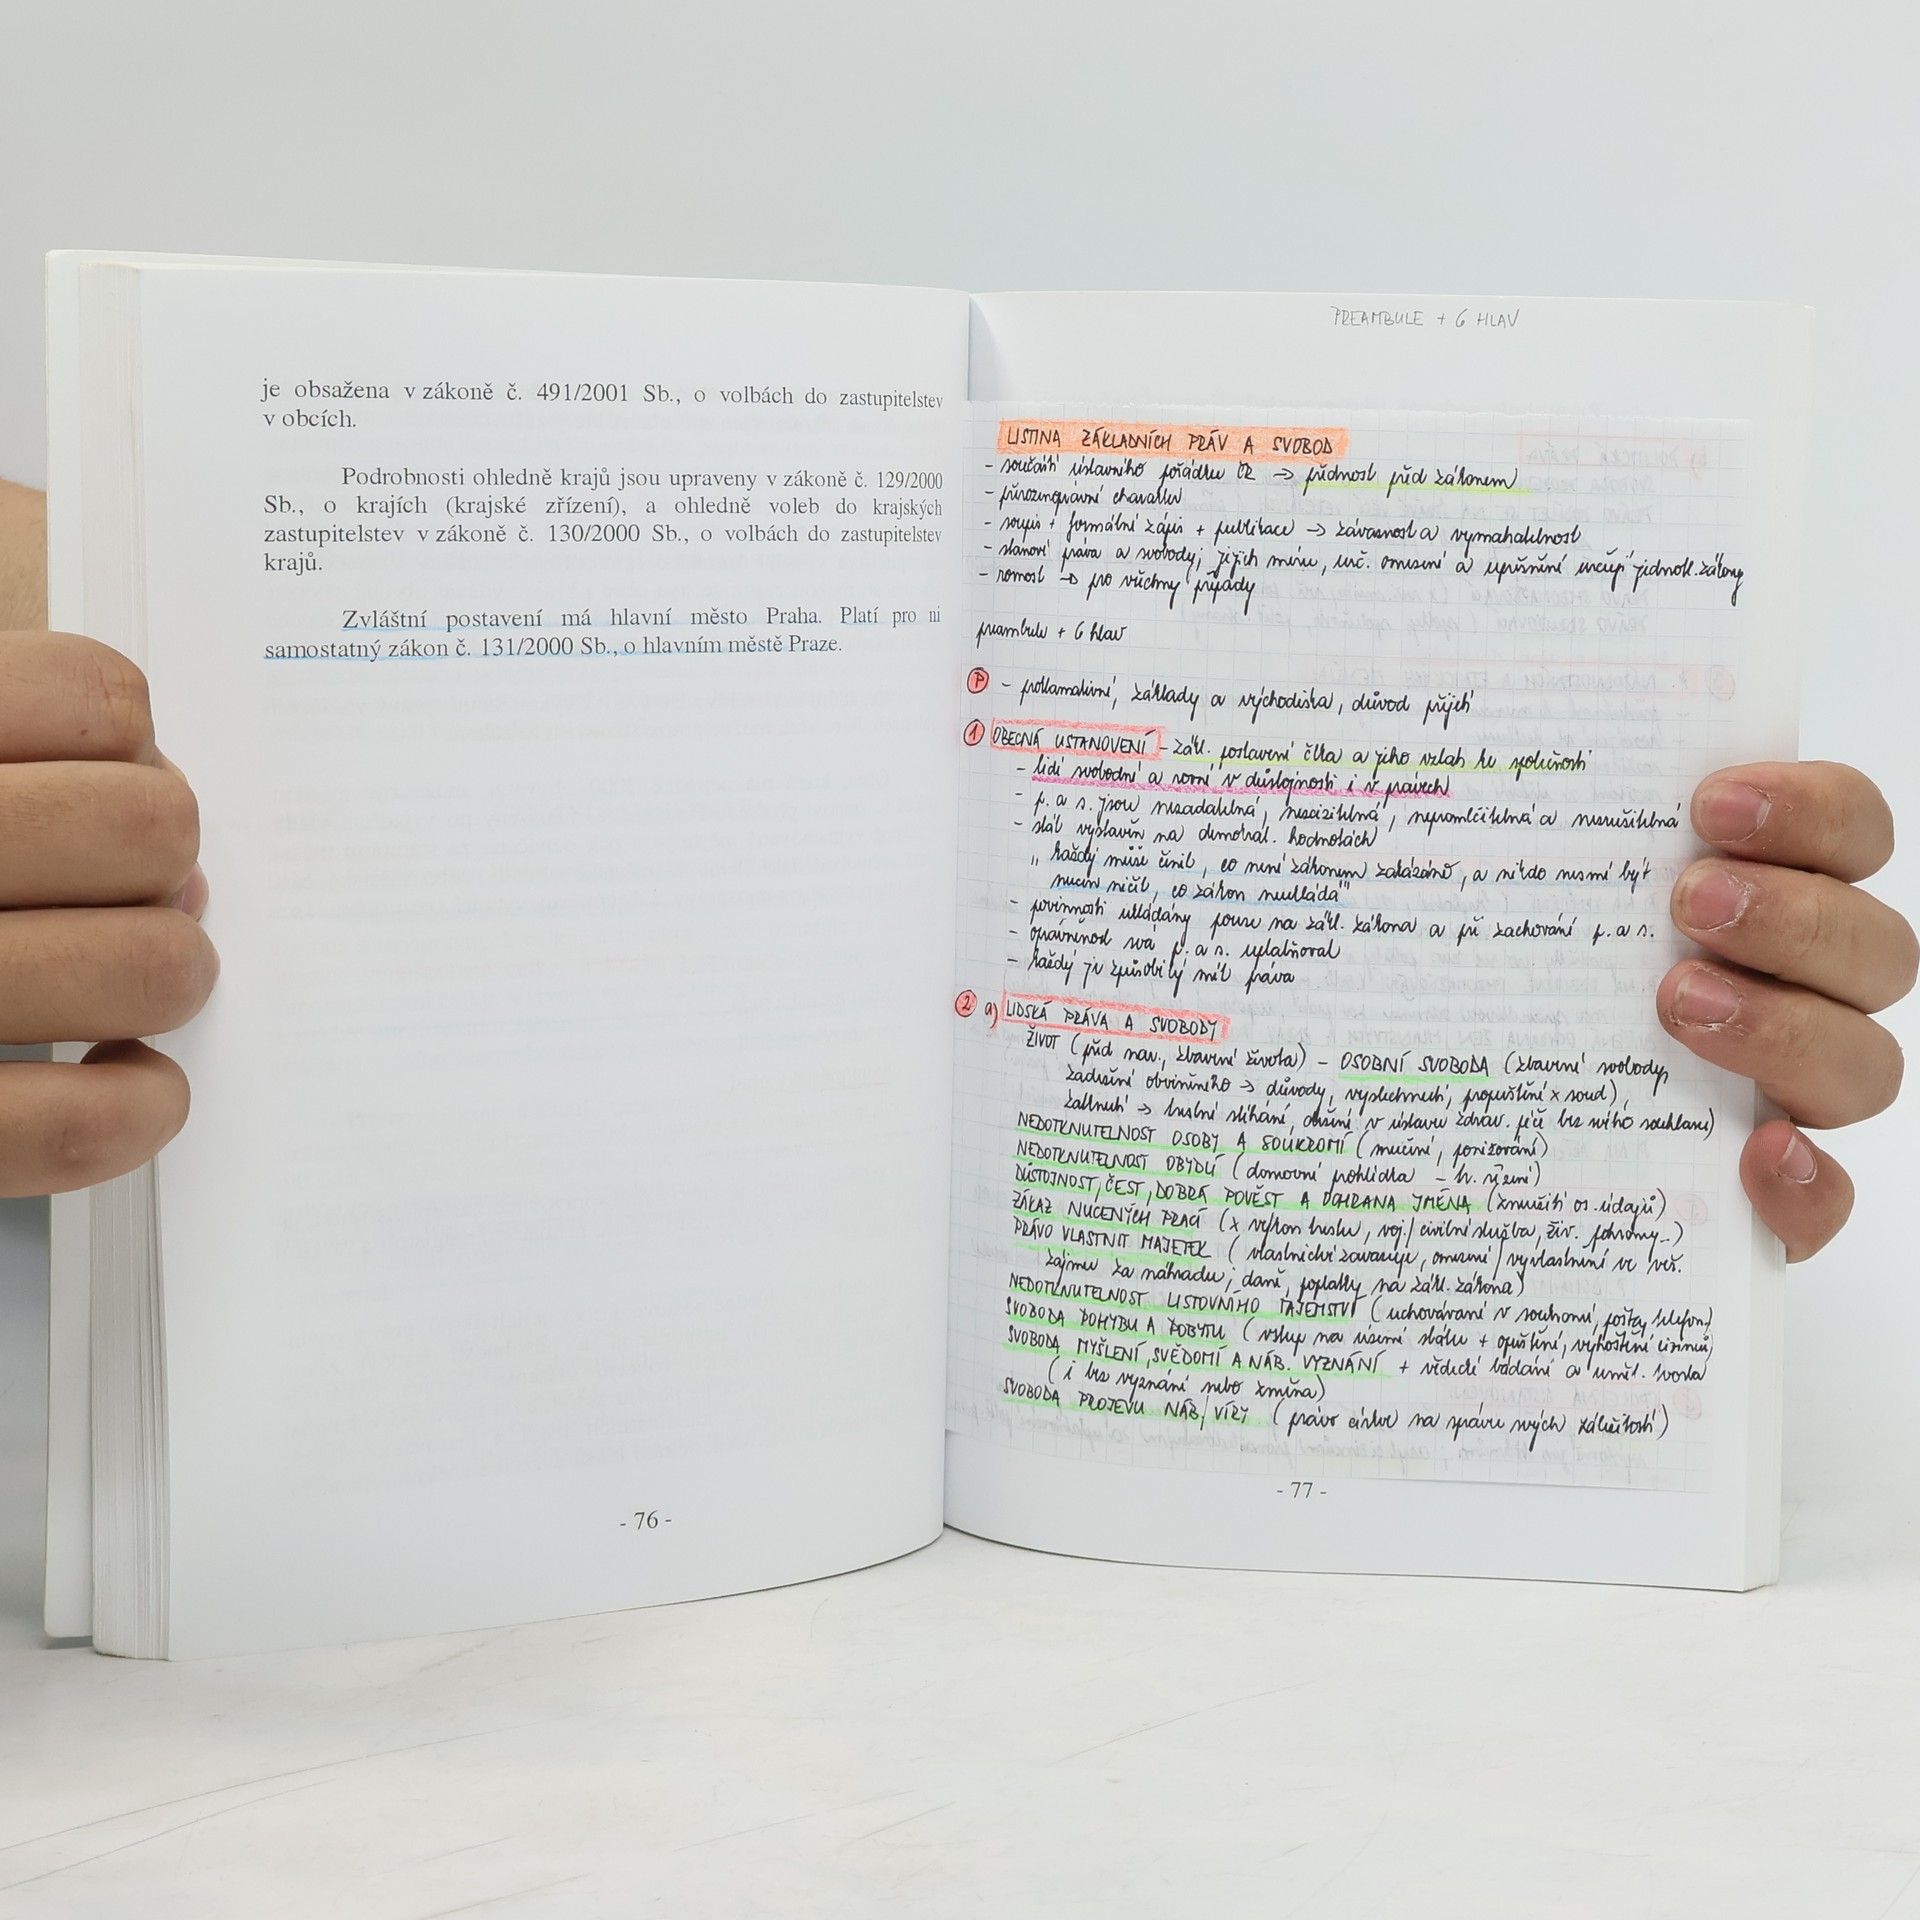 je obsažena v zákoně č. 491/2001 Sb., o volbách do zastupitelstev
v obcích.
Podrobnosti ohledně krajů jsou upraveny v zákoně č. 129/2000
Sb., o krajích (krajské zřízení), a ohledně voleb do krajských
zastupitelstev v zákoně č. 130/2000 Sb., o volbách do zastupitelstev
krajů.
Zvláštní postavení má hlavní město Praha. Platí pro ni
samostatný zákon č. 131/2000 Sb., o hlavním městě Praze.
- 76 -
PREAMBULE + 6 HLAV
LISTINA ZÁKLADNÍCH PRÁV A SVOBOD
- součástí ústavního pořádku ČR → přednost před zákonem
- přirozenoprávní charakter
- soupis + formální zápis + publikace → závaznost a vymahatelnost
- stanoví práva a svobody; jejich míru, urč. omezení a upřesnění určují jednotl. zákony
- rovnost → pro všechny případy
preambule + 6 hlav
P - proklamativní, základy a východiska, důvod přijetí
1 OBECNÁ USTANOVENÍ - zákl. postavení čl-ka a jeho vztah ke společnosti
- lidi svobodní a rovní v důstojnosti i v právech
- p. a s. jsou nezadatelná, nezcizitelná, nepromlčitelná a nezrušitelná
- stát vystavěn na demokrat. hodnotách
„každý může činit, co není zákonem zakázáno, a nikdo nesmí být
nucen ničit, co zákon neukládá"
- povinnosti ukládány pouze na zákl. zákona a při zachování p. a s.
- oprávněnost svá p. a s. uplatňovat
- každý je způsobilý mít práva
2 a) LIDSKÁ PRÁVA A SVOBODY
ŽIVOT (před nar., zbavení života) - OSOBNÍ SVOBODA (zbavení svobody,
zadržení obviněného → důvody, vyslechnutí, propuštění x soud),
zatknutí → trestné stíhání, držení v ústavu zdrav. péče bez svého souhlasu)
NEDOTKNUTELNOST OSOBY A SOUKROMÍ (mučení, ponižování)
NEDOTKNUTELNOST OBYDLÍ (domovní prohlídka - tr. řízení)
DŮSTOJNOST, ČEST, DOBRÁ POVĚST A OCHRANA JMÉNA (zneužití os. údajů)
ZÁKAZ NUCENÝCH PRACÍ (x výkon trestu, voj./civilní služba, živ. pohromy...)
PRÁVO VLASTNIT MAJETEK (vlastnictví zavazuje, omezení/vyvlastnění ve veř.
zájmu za náhradu; daně, poplatky na zákl. zákona)
NEDOTKNUTELNOST LISTOVNÍHO TAJEMSTVÍ (uchovávané v soukromí, pošta, telefon)
SVOBODA POHYBU A POBYTU (vstup na území státu + opuštění, vyhoštění cizinců)
SVOBODA MYŠLENÍ, SVĚDOMÍ A NÁB. VYZNÁNÍ + vědecké bádání a uměl. tvorba
(i bez vyznání nebo změna)
SVOBODA PROJEVU NÁB./VÍRY (právo církve na správu svých záležitostí)
- 77 -